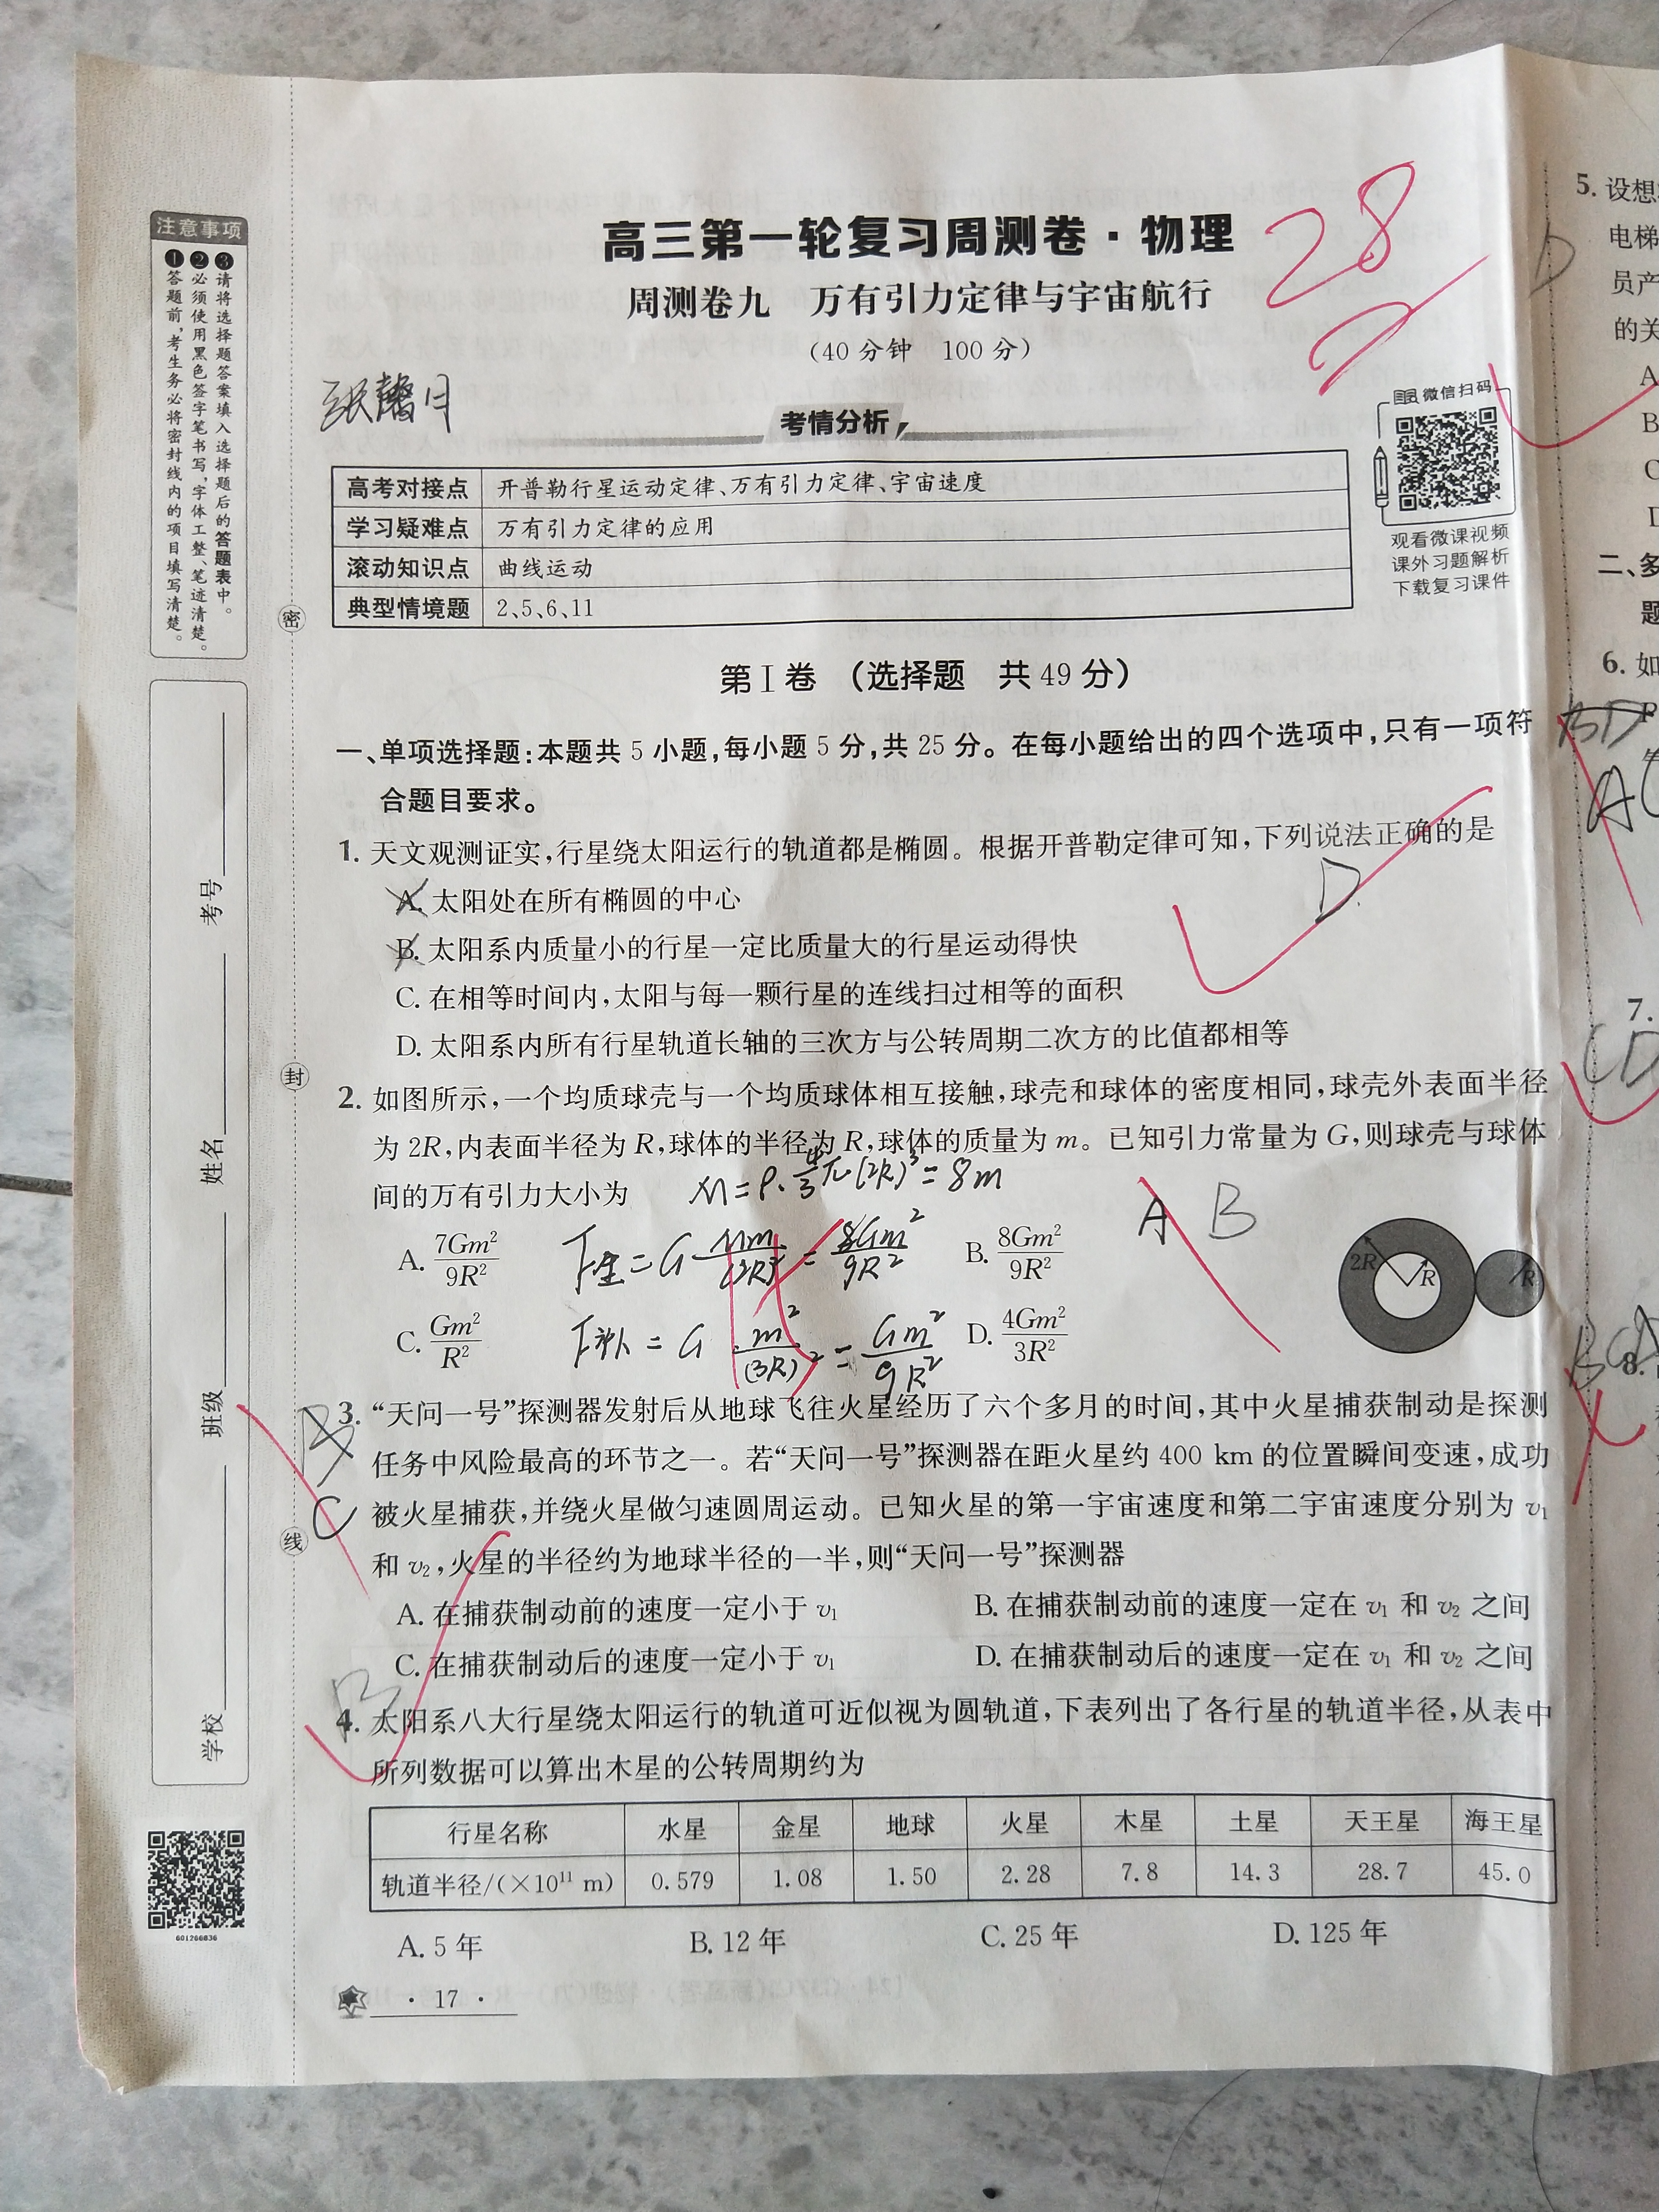 注意事项
❶答题前,考生务必将密封线内的项目填写清楚。
❷必须使用黑色签字笔书写,字体工整、笔迹清楚。
❸请将选择题答案填入选择题后的答题表中。
考号
姓名
班级
学校
密
封
线
601266036
高三第一轮复习周测卷·物理
28
周测卷九 万有引力定律与宇宙航行
(40分钟 100分)
张馨月
考情分析
微信扫码
观看微课视频
课外习题解析
下载复习课件
高考对接点 开普勒行星运动定律、万有引力定律、宇宙速度
学习疑难点 万有引力定律的应用
滚动知识点 曲线运动
典型情境题 2、5、6、11
第Ⅰ卷 (选择题 共49分)
一、单项选择题:本题共5小题,每小题5分,共25分。在每小题给出的四个选项中,只有一项符
合题目要求。
1. 天文观测证实,行星绕太阳运行的轨道都是椭圆。根据开普勒定律可知,下列说法正确的是
D.
A. 太阳处在所有椭圆的中心
B. 太阳系内质量小的行星一定比质量大的行星运动得快
C. 在相等时间内,太阳与每一颗行星的连线扫过相等的面积
D. 太阳系内所有行星轨道长轴的三次方与公转周期二次方的比值都相等
2. 如图所示,一个均质球壳与一个均质球体相互接触,球壳和球体的密度相同,球壳外表面半径
为2R,内表面半径为R,球体的半径为R,球体的质量为m。已知引力常量为G,则球壳与球体
间的万有引力大小为 M=ρ·4/3π(2R)³=8m
A B
A. 7Gm²/9R² B. 8Gm²/9R²
C. Gm²/R² D. 4Gm²/3R²
F补=G m²/(3R)²=Gm²/9R²
2R R R
3. “天问一号”探测器发射后从地球飞往火星经历了六个多月的时间,其中火星捕获制动是探测
任务中风险最高的环节之一。若“天问一号”探测器在距火星约400 km的位置瞬间变速,成功
C 被火星捕获,并绕火星做匀速圆周运动。已知火星的第一宇宙速度和第二宇宙速度分别为v₁
和v₂,火星的半径约为地球半径的一半,则“天问一号”探测器
A. 在捕获制动前的速度一定小于v₁ B. 在捕获制动前的速度一定在v₁和v₂之间
C. 在捕获制动后的速度一定小于v₁ D. 在捕获制动后的速度一定在v₁和v₂之间
B
4. 太阳系八大行星绕太阳运行的轨道可近似视为圆轨道,下表列出了各行星的轨道半径,从表中
所列数据可以算出木星的公转周期约为
行星名称 水星 金星 地球 火星 木星 土星 天王星 海王星
轨道半径/(×10¹¹ m) 0.579 1.08 1.50 2.28 7.8 14.3 28.7 45.0
A. 5年 B. 12年 C. 25年 D. 125年
· 17 ·
5. 设想
电梯
D
员产
的关
A
B
C
D
二、多
题
6. 如
BD
7.
CD
8.